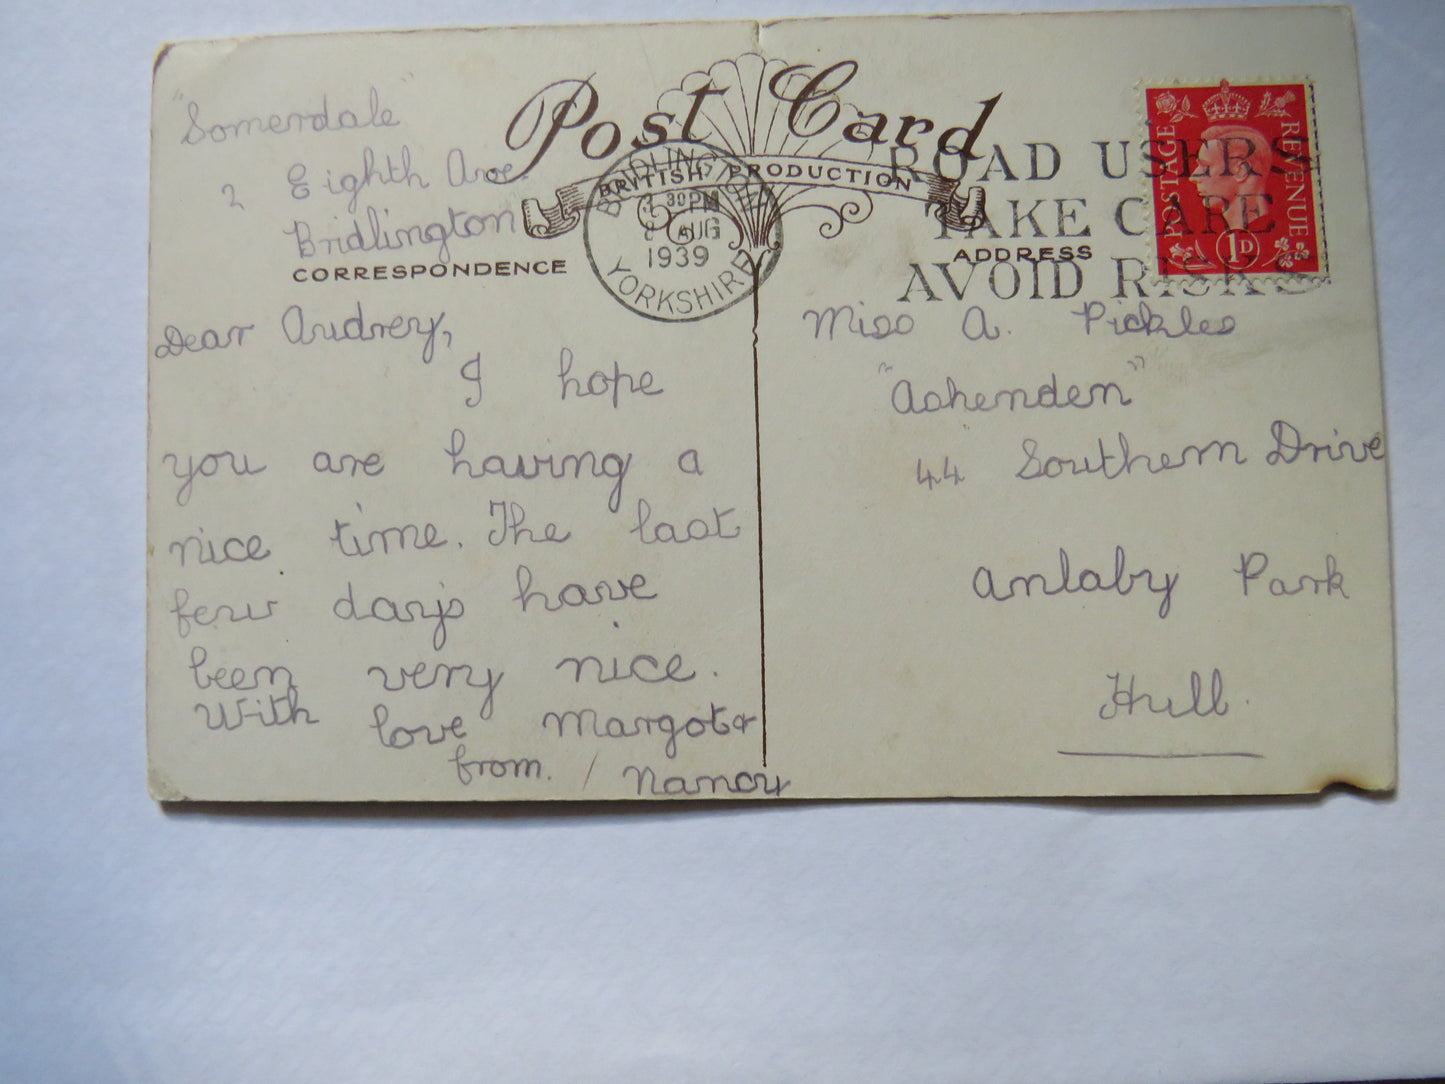 Post Card
BRITISH PRODUCTION
"Somerdale"
2 Eighth Ave
Bridlington
CORRESPONDENCE
Dear Audrey,
I hope
you are having a
nice time. The last
few days have
been very nice.
With love Margot &
from. Nancy
BRIDLINGTON
3 30 PM
8 AUG
1939
YORKSHIRE
ROAD USERS
TAKE CARE
AVOID RISKS
POSTAGE
REVENUE
1D
ADDRESS
Miss A. Pickles
"Ashenden"
44 Southern Drive
Anlaby Park
Hull.